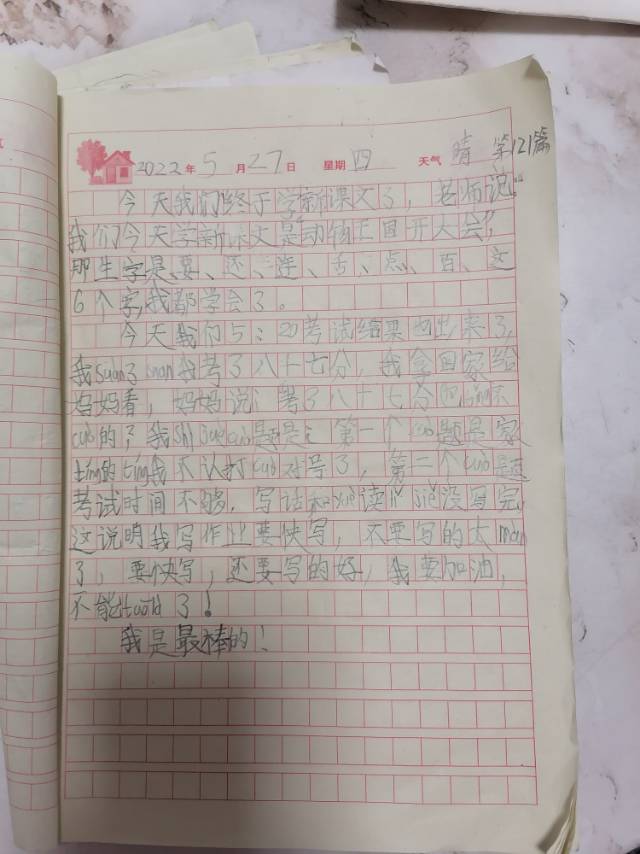 2022年5月27日 星期四 天气 晴 第121篇
今天我们终于学新课文了,老师说:"
我们今天学新课文是"动物王国开大会",
那生字是、要、还、连、舌、点、百、这
6个字,我都学会了。
今天我们5:20考试结果也出来了,
我suan了 我考了八十七分,我拿回家给
妈妈看,妈妈说:考了八十七分 不
cuò的?我 题是:第一个cuò题是家
tíng的tíng我不认打cuò对号了,第二个cuò题
考试时间不够,写话和 读 没写完,
这说明我写作业要快写,不要写的太màn
了,要快写,还要写的好,我要加油,
不能 了!
我是最棒的!